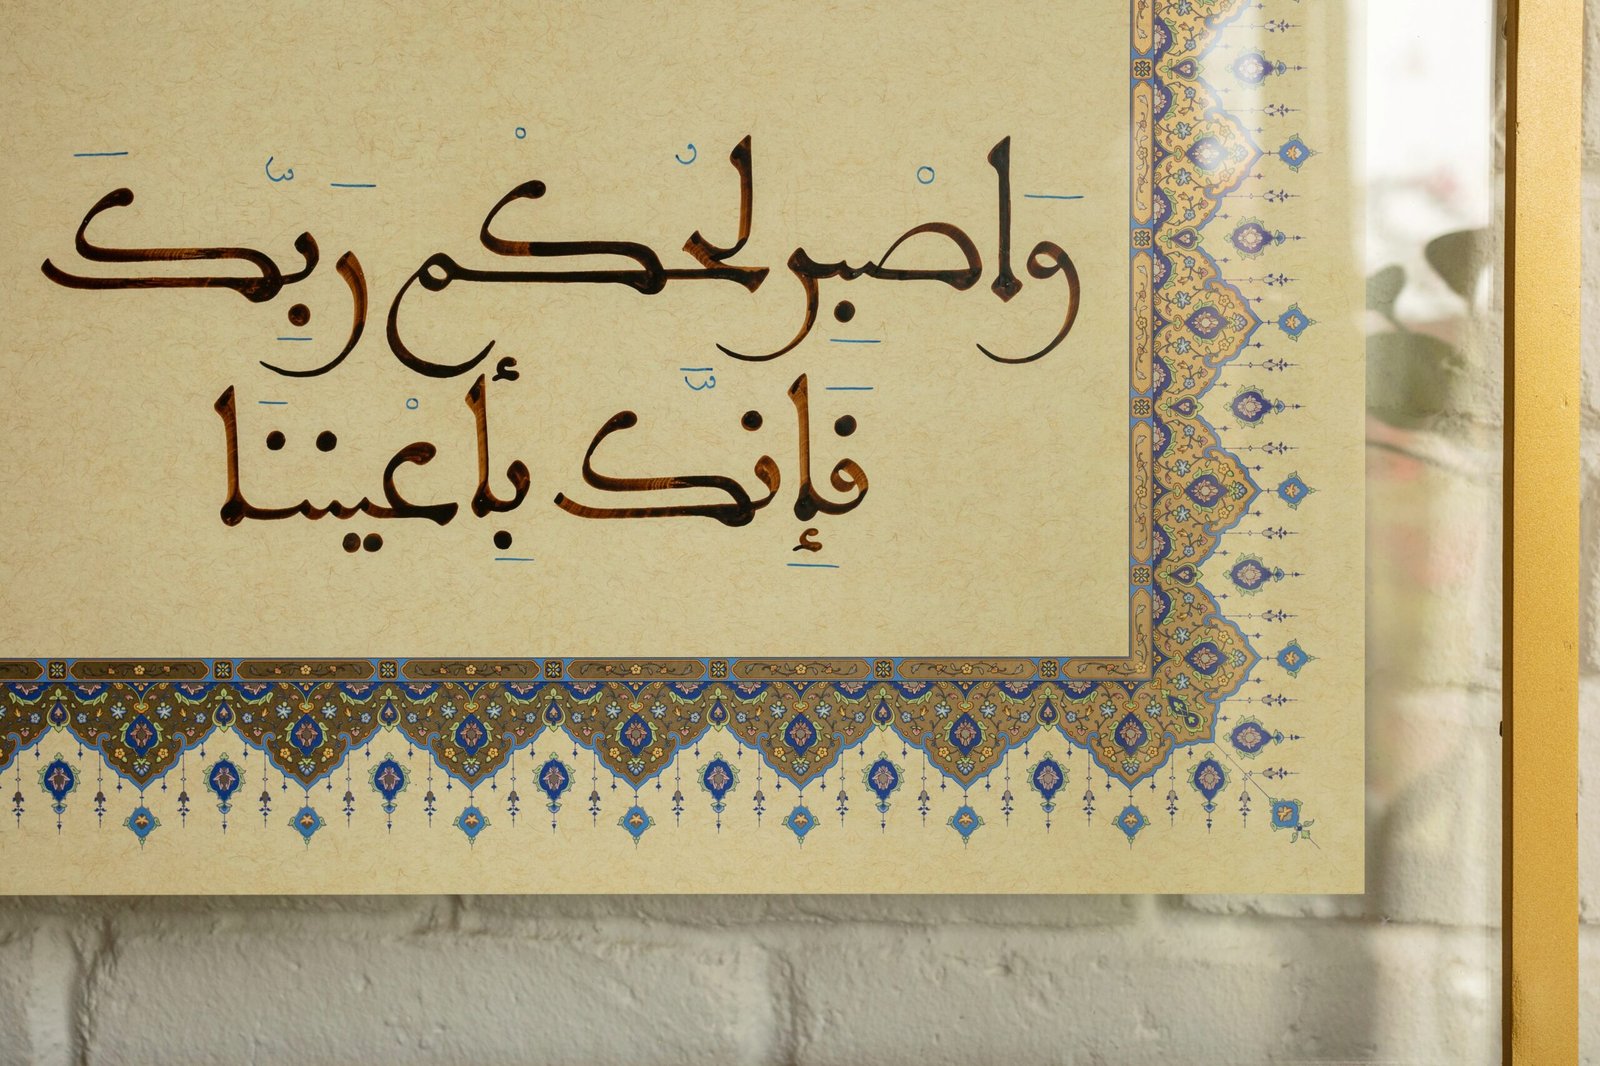 وَاصْبِر لِحُكْمِ رَبِّكَ
فَإِنَّكَ بِأَعْيُنِنَا